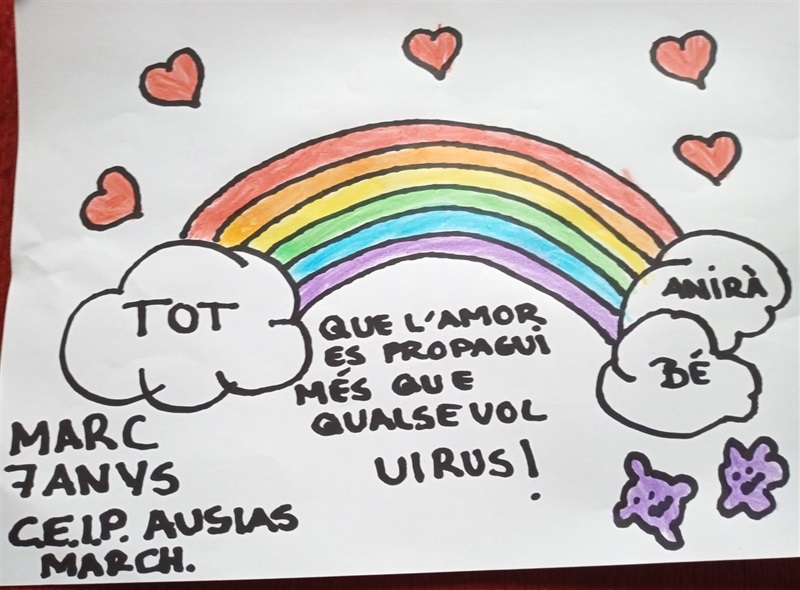 TOT
ANIRÀ
BÉ
QUE L'AMOR
ES PROPAGUI
MÉS QUE
QUALSEVOL
VIRUS!
MARC
7 ANYS
C.E.I.P. AUSIAS
MARCH.